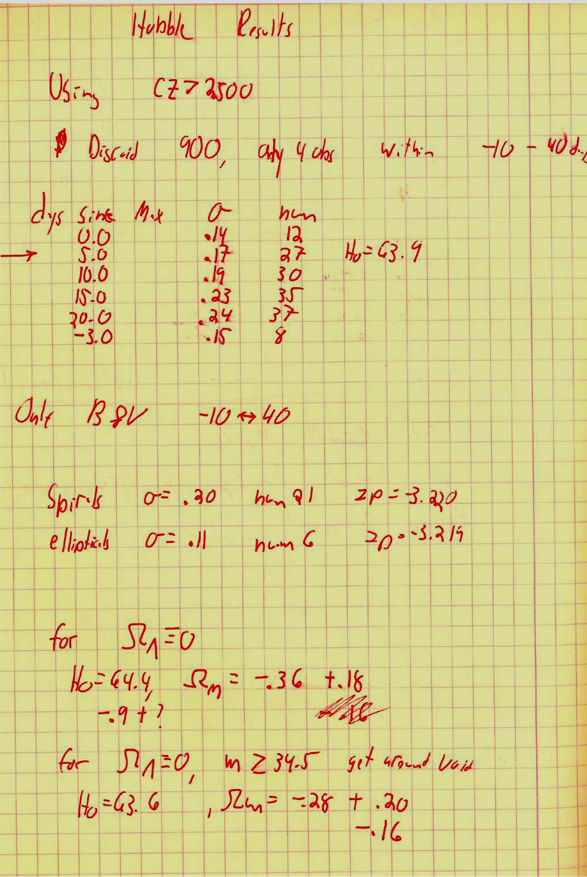 Hubble Results
Using CZ > 2500
Discard 900, only 4 obs within -10 - 40 days
dys since Max σ num
0.0 .14 12
→ 5.0 .17 27 Ho=63.9
10.0 .19 30
15.0 .23 35
20.0 .24 37
-3.0 .15 8
Only B&V -10 ↔ 40
Spirals σ= .20 num 21 zp = -3.220
ellipticals σ= .11 num 6 zp = -3.219
for ΩΛ=0
Ho=64.4, Ωm = -.36 +.18
-.9+?
for ΩΛ=0, m ≥ 34.5 get around void
Ho=63.6 , Ωm = -.28 + .20
-.16